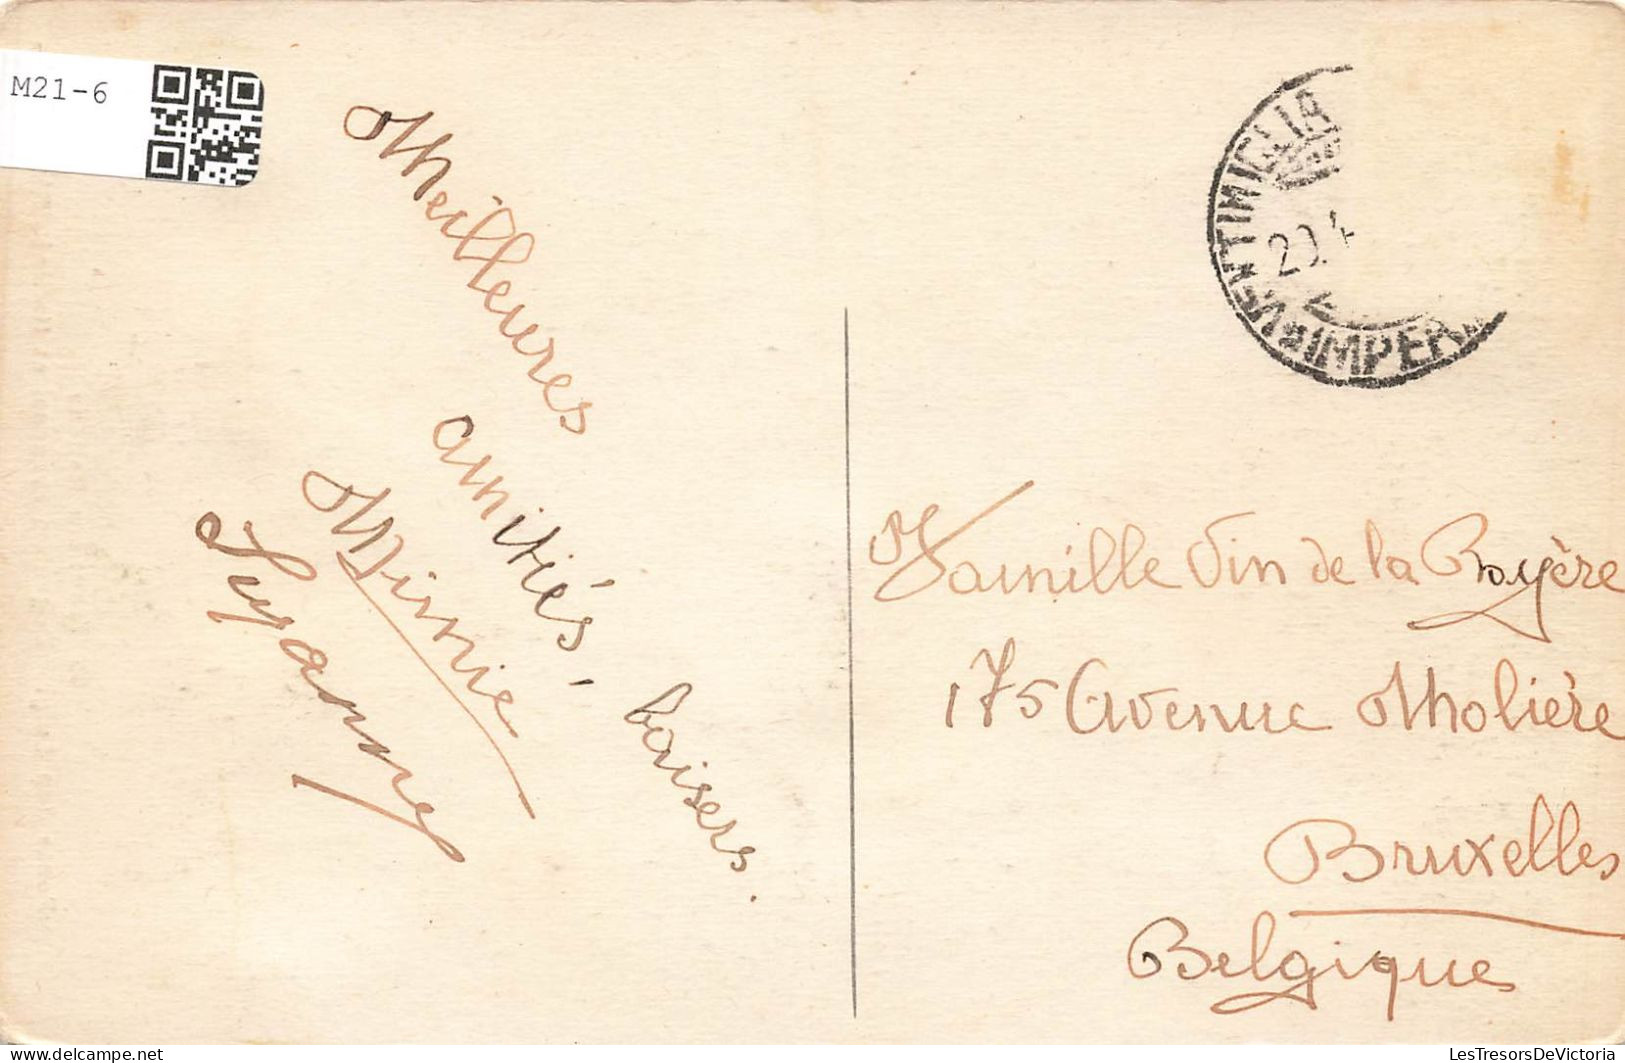 M21-6
Meilleures
amitiés, baisers.
Minnie
Suzanne
VENTIMIGLIA
IMPER
20.4
Famille Vin de la Royère
175 Avenue Molière
Bruxelles
Belgique
delcampe.net
LesTresorsDeVictoria